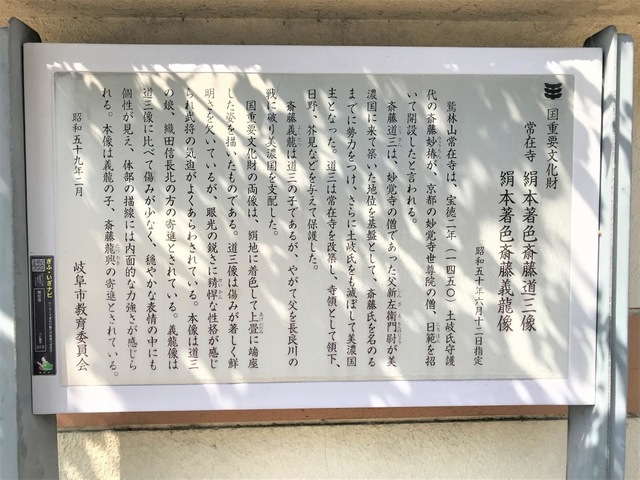 国重要文化財
常在寺 絹本著色斎藤道三像
絹本著色斎藤義龍像
昭和五十年六月十二日指定
鷲林山常在寺は、宝徳二年(一四五〇)土岐氏守護
代の斎藤妙椿が、京都の妙覚寺世尊院の僧、日範を招
いて開設したと言われる。
斎藤道三は、妙覚寺の僧であった父新左衛門尉が美
濃国に来て築いた地位を基盤として、斎藤氏を名のる
までに勢力をつけ、さらに土岐氏をも滅ぼして美濃国
主となった。道三は常在寺を改築し、寺領として領下、
日野、芥見などを与えて保護した。
斎藤義龍は道三の子であるが、やがて父を長良川の
戦に破り美濃国を支配した。
国重要文化財の両像は、絹地に着色して上畳に端座
した姿を描いたものである。道三像は傷みが著しく鮮
明さを欠いているが、眼光の鋭さに精悍な性格が感じ
られ武将の気迫がよくあらわされている。本像は道三
の娘、織田信長北の方の寄進とされている。義龍像は
道三像に比べて傷みが少なく、穏やかな表情の中にも
個性が見え、体部の描線には内面的な力強さが感じら
れる。本像は義龍の子、斎藤龍興の寄進とされている。
昭和五十九年二月
岐阜市教育委員会
ぎふ・いざナビ